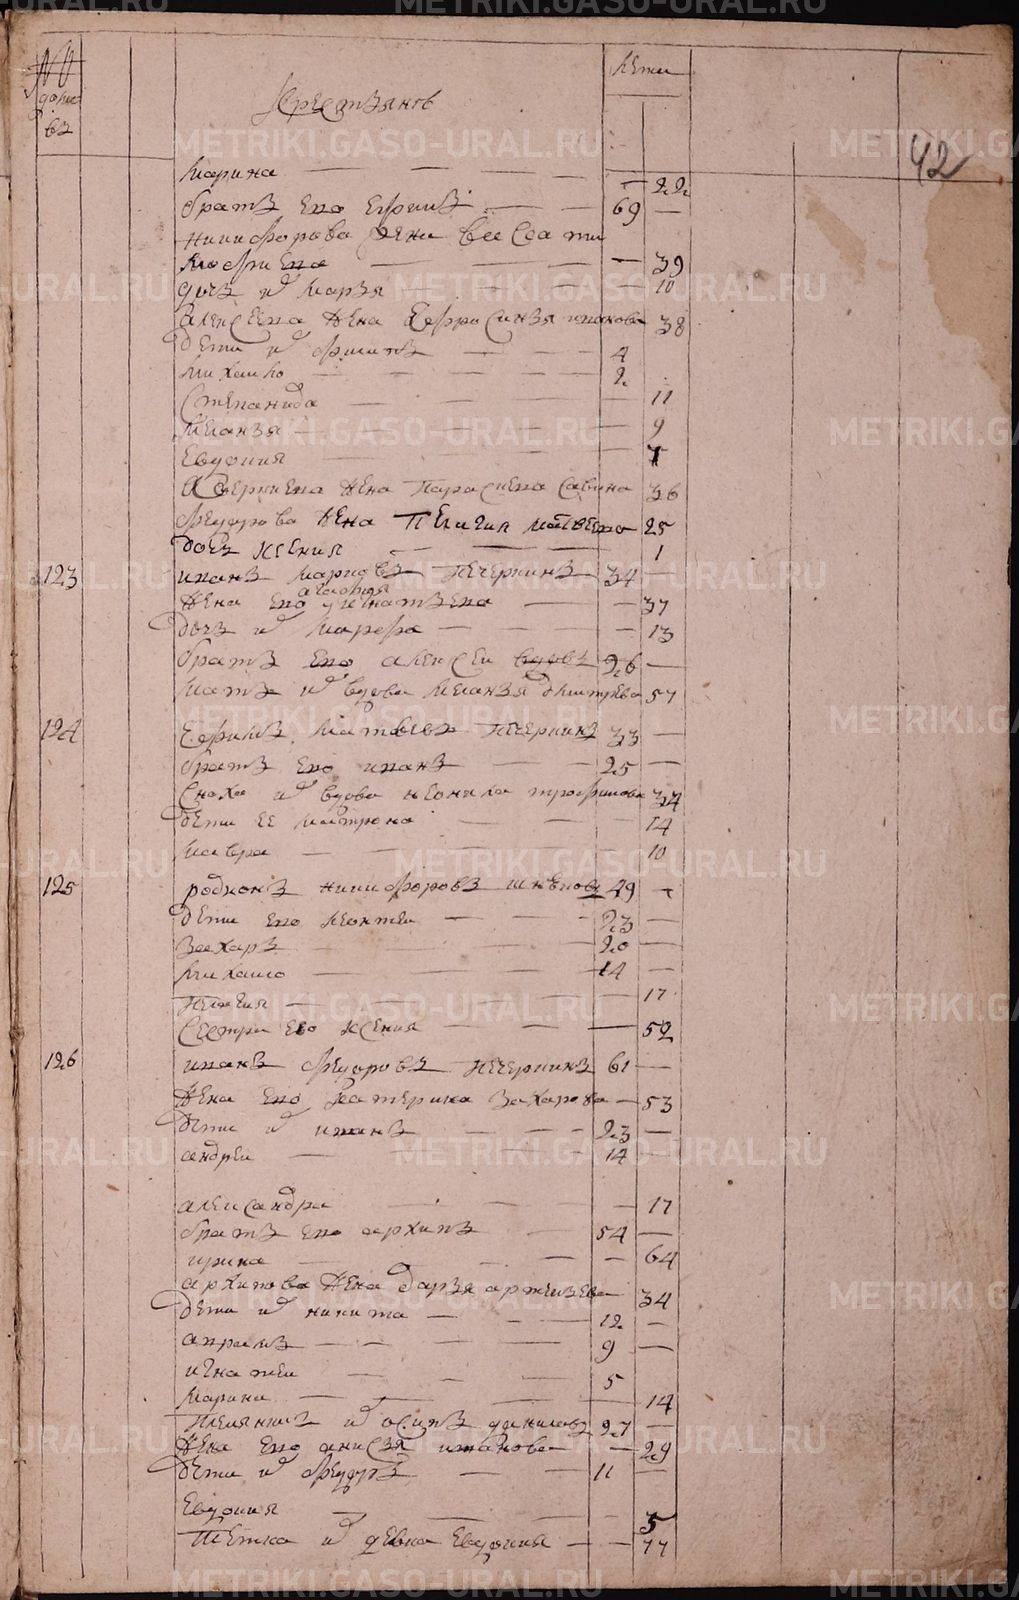 №
домовъ
крестьянъ
лета
42
марина — 22
братъ ево ефимъ 69 —
никифорова жена
— 39
дочь их марья — 10
алексеева жена Ефросинья иванова 38
дети их филипъ 4
михаило 2
Степанида 11
меланья 9
Евдокия 7
Аверкиева жена Парасковья Савина 36
федорова жена Пелагия матвеева 25
дочь ксения 1
123 иванъ марковъ печеркинъ 34 —
агафия
жена ево игнатьева 37
дочь их марфа — 13
братъ ево алексеи вдовъ 26 —
мать их вдова меланья дмитрева 57
124 Ефимъ матвеевъ печеркинъ 33 —
братъ ево иванъ 25 —
Сноха их вдова неонила трофимова 34
дети ее матрона 14
мавра 10
125 родионъ никифоровъ 49 —
дети ево леонтеи 23 —
Захаръ 20 —
михаило 14 —
пелагия — 17
Сестра ево ксения — 52
126 иванъ федоровъ печеркинъ 61 —
жена ево катерина захарова — 53
дети их иванъ 23 —
андреи 14 —
александра — 17
братъ ево архипъ 54 —
ирина — 64
архипова жена дарья 34
дети их никита 12 —
абрамъ 9 —
игнатеи 5
марина — 14
племянникъ их осипъ даниловъ 27 —
жена ево анисья иванова — 29
дети их федоръ 11 —
Евдокия — 5
тетка их девка Евдокия — 77
METRIKI.GASO-URAL.RU